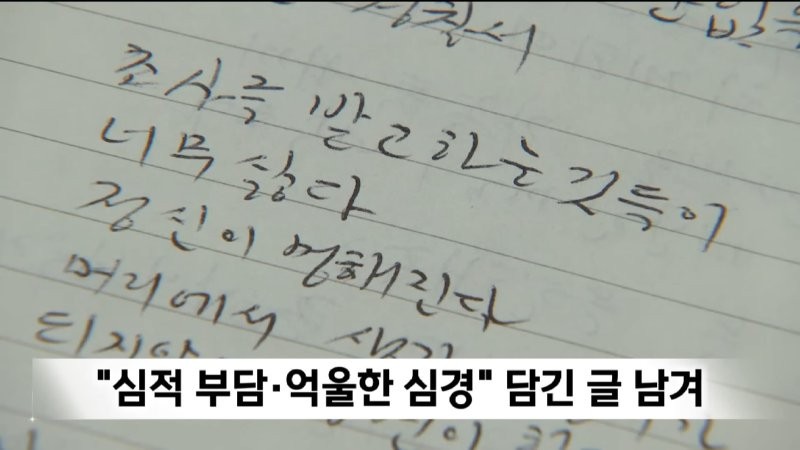 경찰서
조사를 받고 하는 것들이
너무 싫다
정신이 멍해진다
머리에서 생각
"심적 부담·억울한 심경" 담긴 글 남겨